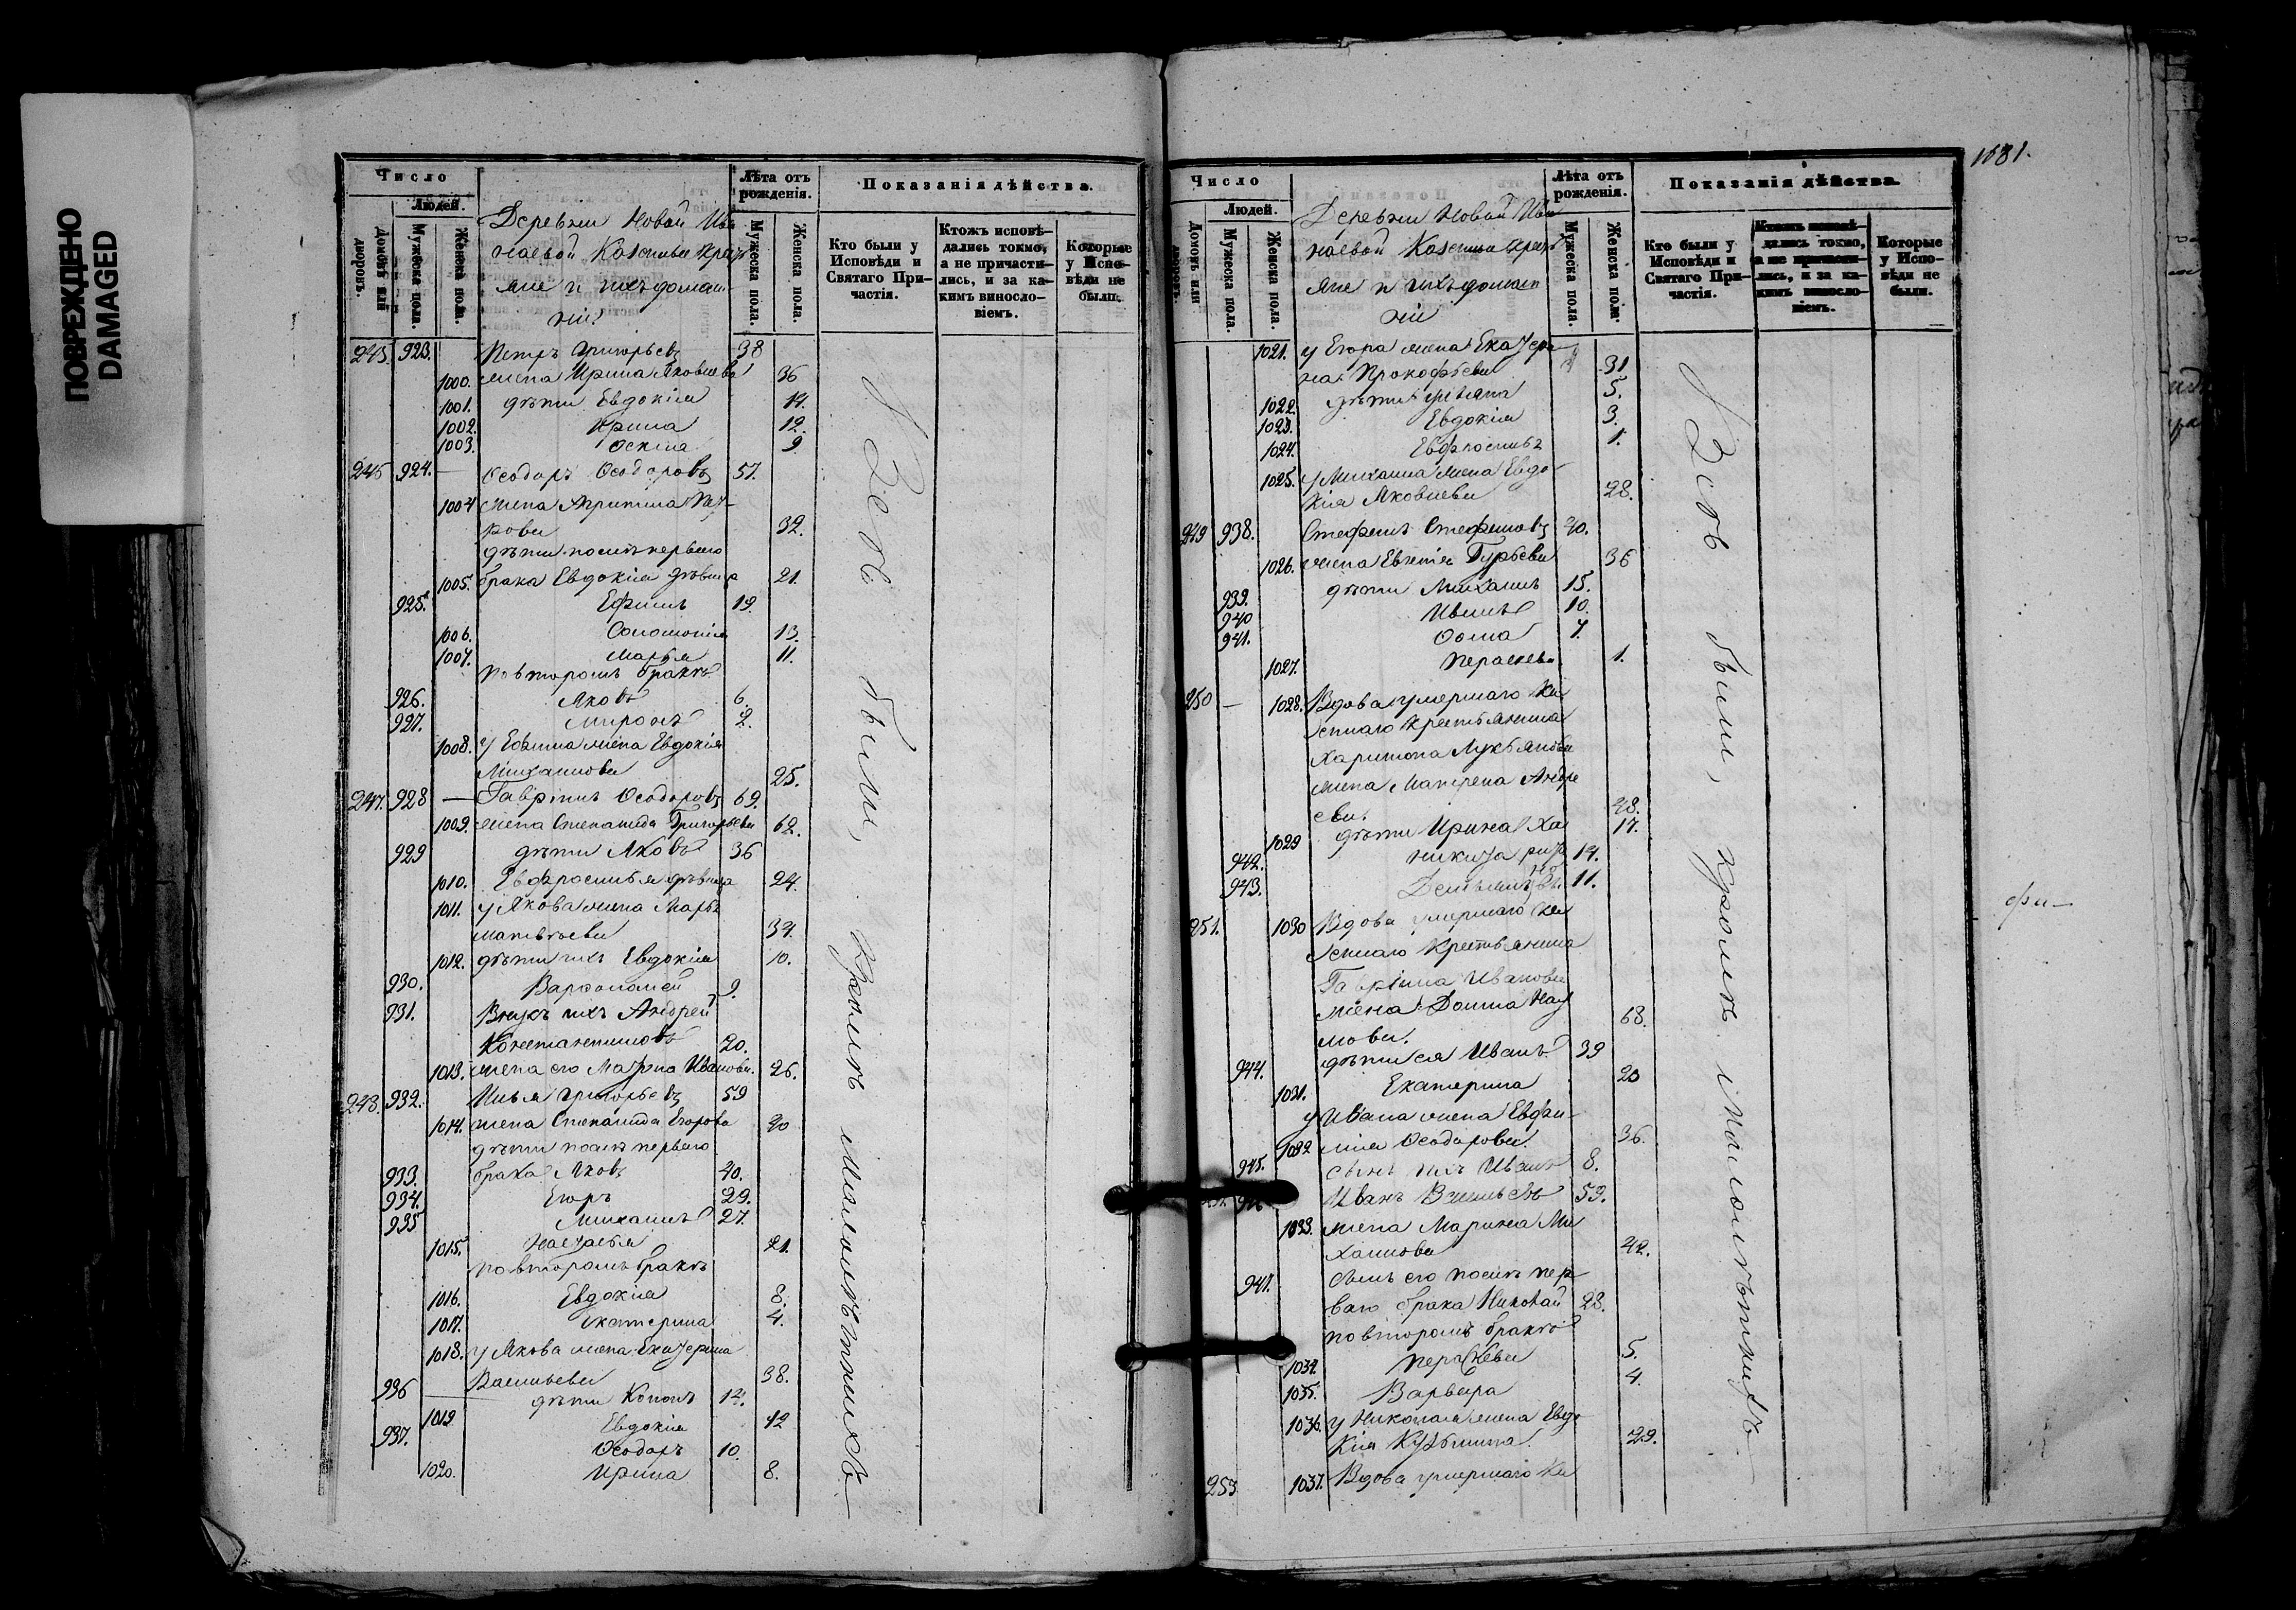 ПОВРЕЖДЕНО
DAMAGED
Число
Людей.
Домовъ или дворовъ.
Мужеска пола.
Женска пола.
Деревни Новой Ива
наевой Казенныи Кресть
яне и ихъ домаш
ніи.
Лѣта отъ рожденія.
Мужеска пола.
Женска пола.
Показанія дѣйства.
Кто были у Исповѣди и Святаго Причастія.
Ктожъ исповѣдались токмо, а не причастились, и за какимъ винословіемъ.
Которые у Исповѣди не были.
923. Петръ Григорьевъ 38
1000. жена Ирина Яковлева 36
1001. дѣти Евдокія 14.
1002. Ирина 12.
1003. 9
924. — Ѳеодоръ Ѳеодоровъ 57.
1004 жена Агрипина Пет-
рова 32.
дѣти послѣ перваго
1005. брака Евдокія дѣвица 21.
925. Ефимъ 19.
1006. Соломонія 13.
1007. Марья 11.
По второмъ бракѣ
926. Яковъ 6.
927. Миронъ 2.
1008. у Ефима жена Евдокія
Михаилова 25.
247. 928 — Гавріилъ Ѳеодоровъ 69.
1009. жена Степанида Григорьева 62.
929 дѣти Яковъ 36
1010. Евфросинья дѣвица 24.
1011. у Якова жена Марья
Матвѣева 34.
1012. дѣти ихъ Евдокія 10.
930. Варѳоломей 9.
931. Внукъ ихъ Андрей
Константиновъ 20.
1013. жена его Матрена Иванова. 26.
248. 932. Илья Григорьевъ 59
1014. жена Степанида Егорова 40
дѣти послѣ перваго
933. брака Яковъ 40.
934. Егоръ 29.
935 Михаилъ 27.
1015. Настасья 21.
По второмъ бракѣ
1016. Евдокія 8.
1017. Екатерина 4.
1018. у Якова жена Екатерина
Васильева 38.
936 — дѣти Кононъ 14.
1019 Евдокія 12
937. Ѳеодоръ 10.
1020. Ирина 8.
Всѣ были, кромѣ малолѣтнихъ
1681.
Число
Людей.
Домовъ или дворовъ.
Мужеска пола.
Женска пола.
Деревни Новой Ива
наевой Казенныи Кресть
яне и ихъ домаш
ніи
Лѣта отъ рожденія.
Мужеска пола.
Женска пола.
Показанія дѣйства.
Кто были у Исповѣди и Святаго Причастія.
Ктожъ исповѣдались токмо, а не причастились, и за какимъ винословіемъ.
Которые у Исповѣди не были.
1021. у Егора жена Екатери
на Прокофьева 31
1022. дѣти 5.
1023. Евдокія 3.
1024. Евфросинья 1.
1025. у Михаила жена Евдо-
кія Яковлева 28.
249 938. Стефанъ Стефановъ 40.
1026. жена Евгенія Гурьева 36
939. дѣти Михаилъ 15.
940 Иванъ 10.
941. Ѳома 7.
1027. Параскева 1.
250 — 1028. Вдова умершаго Ка
зеннаго крестьянина
Харитона Лукьянова
жена Матрена Андре
ева. 48.
1029 дѣти Ирина Ха 17.
942. Никита рито 14.
943. 11.
251. 1030 Вдова умершаго Ка
зеннаго Крестьянина
Гавріила Иванова
жена Домна Нау
мова. 68.
944. дѣти ея Иванъ 39
1031. Екатерина 20
у Ивана жена Евфи-
1032 мія Ѳеодорова. 36.
945. Сынъ ихъ Иванъ 8.
Иванъ Васильевъ 59.
1033. жена Марина Ми
хаилова 42.
947. Сынъ его послѣ пер
ваго брака Николай 28.
По второмъ бракѣ
1034. Параскева 5.
1035. Варвара 4.
1036. у Николая жена Евдо
кія Кузьмина. 29.
253 1037. Вдова умершаго Ка
Всѣ были, кромѣ малолѣтнихъ
фи—